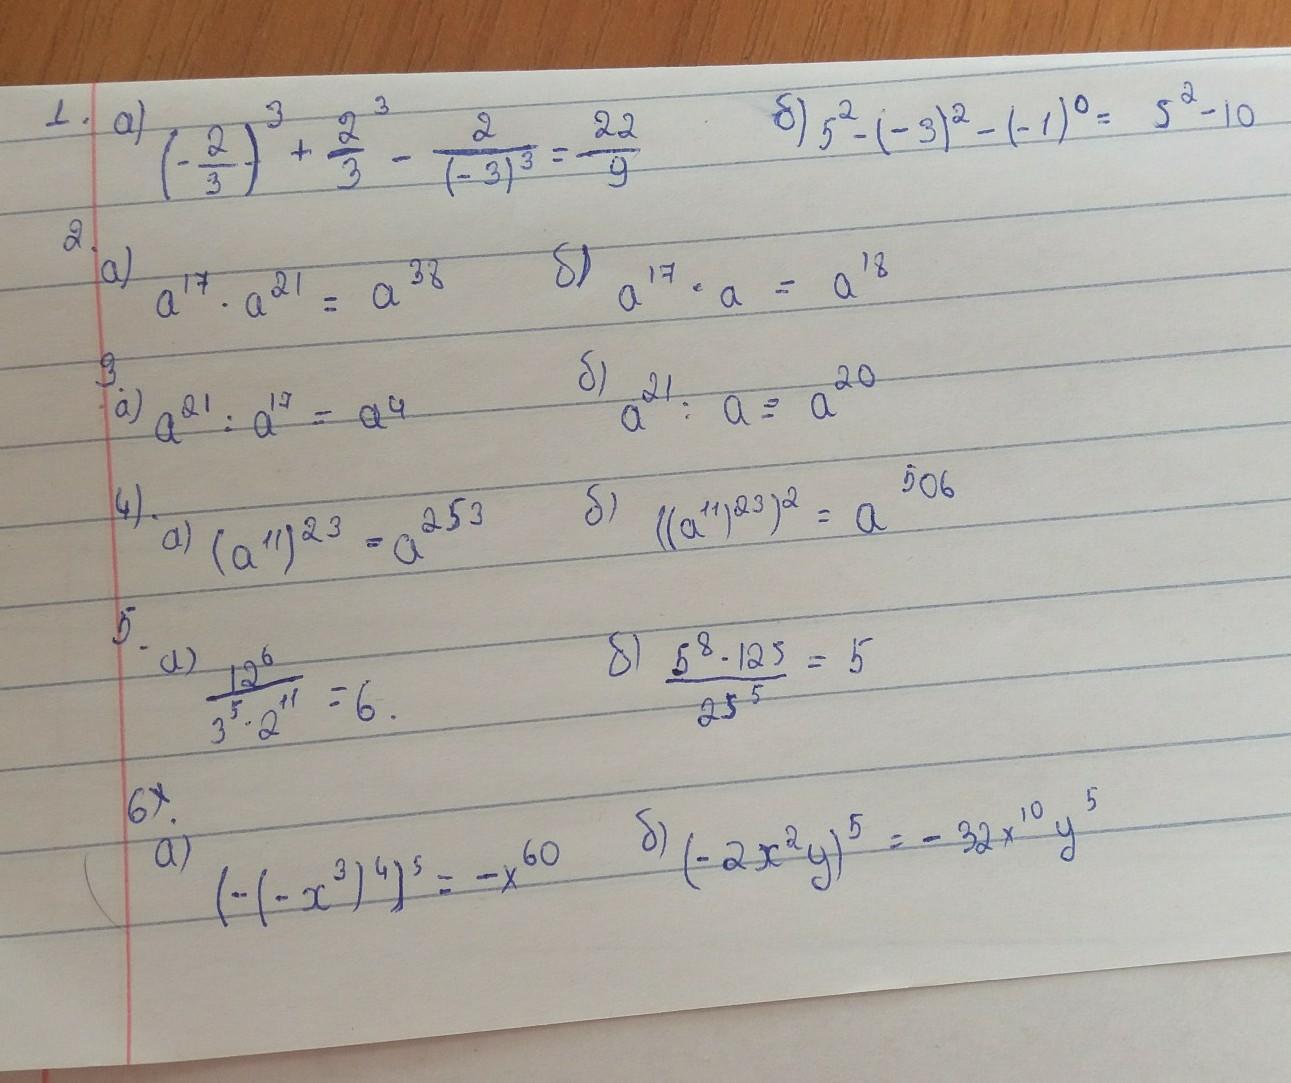 1. а) (-2/3)³ + 2³/3 - 2/(-3)³ = 22/9 б) 5² - (-3)² - (-1)⁰ = 5² - 10
2.
а) a¹⁷ · a²¹ = a³⁸ б) a¹⁷ · a = a¹⁸
3.
а) a²¹ : a¹⁷ = a⁴ б) a²¹ : a = a²⁰
4).
а) (a¹¹)²³ = a²⁵³ б) ((a¹¹)²³)² = a⁵⁰⁶
5.
а) 12⁶/(3⁵ · 2¹¹) = 6. б) (5⁸ · 125)/25⁵ = 5
6*.
а) (-(-x³)⁴)⁵ = -x⁶⁰ б) (-2x²y)⁵ = -32x¹⁰y⁵